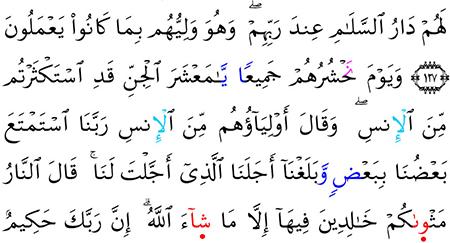 لَهُمْ دَارُ ٱلسَّلَٰمِ عِندَ رَبِّهِمْ ۖ وَهُوَ وَلِيُّهُم بِمَا كَانُوا۟ يَعْمَلُونَ
﴿١٢٧﴾ وَيَوْمَ نَحْشُرُهُمْ جَمِيعًا يَٰمَعْشَرَ ٱلْجِنِّ قَدِ ٱسْتَكْثَرْتُم
مِّنَ ٱلْإِنسِ ۖ وَقَالَ أَوْلِيَآؤُهُم مِّنَ ٱلْإِنسِ رَبَّنَا ٱسْتَمْتَعَ
بَعْضُنَا بِبَعْضٍ وَبَلَغْنَآ أَجَلَنَا ٱلَّذِىٓ أَجَّلْتَ لَنَا ۚ قَالَ ٱلنَّارُ
مَثْوَىٰكُمْ خَٰلِدِينَ فِيهَآ إِلَّا مَا شَآءَ ٱللَّهُ ۗ إِنَّ رَبَّكَ حَكِيمٌ